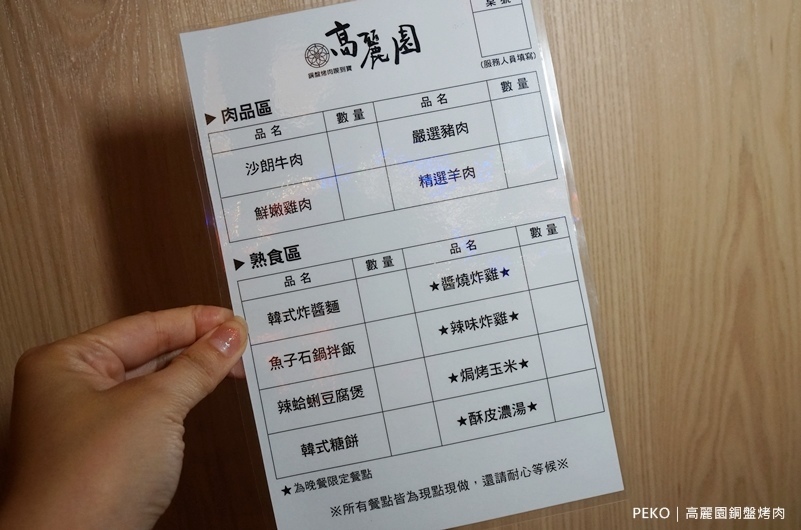 桌號
(服務人員填寫)
高麗園
銅盤烤肉吃到寶
▶肉品區
品名 數量 品名 數量
沙朗牛肉 嚴選豬肉
鮮嫩雞肉 精選羊肉
▶熟食區
品名 數量 品名 數量
韓式炸醬麵 ★醬燒炸雞★
魚子石鍋拌飯 ★辣味炸雞★
辣蛤蜊豆腐煲 ★焗烤玉米★
韓式糖餅 ★酥皮濃湯★
★為晚餐限定餐點
※所有餐點皆為現點現做，還請耐心等候※
PEKO｜高麗園銅盤烤肉